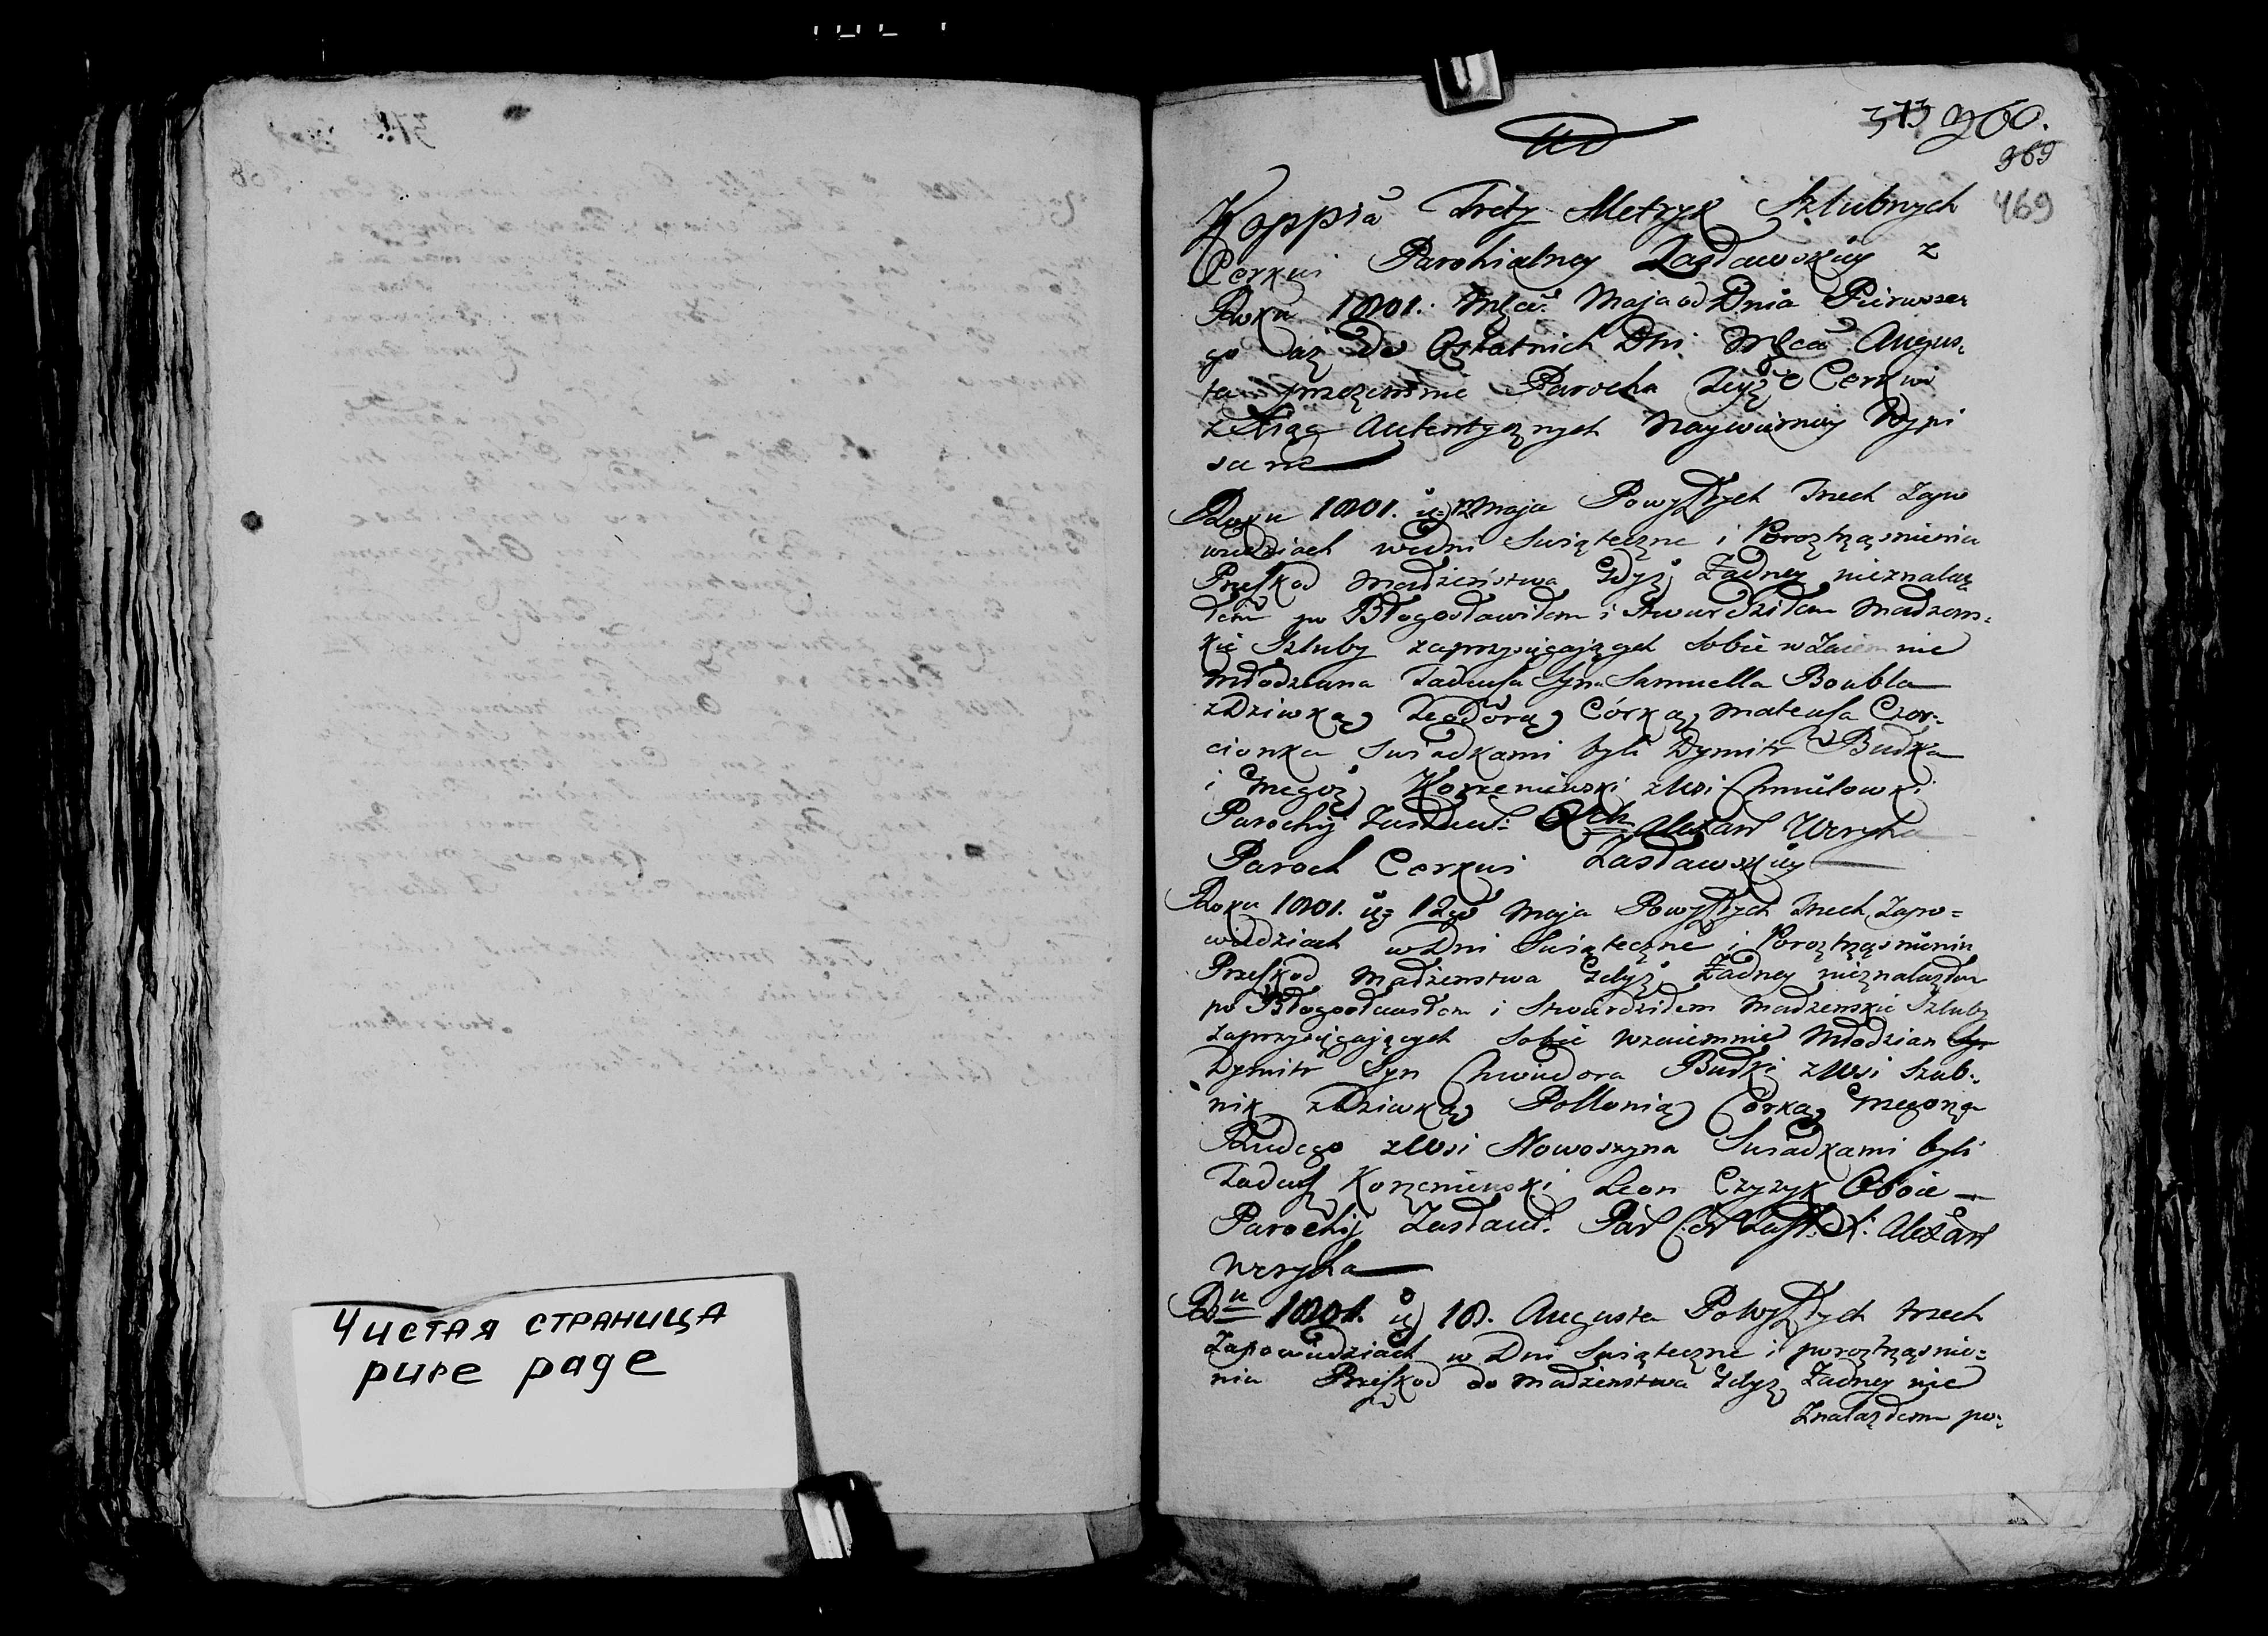 Чистая страница
pure page
373 960.
969
469
Koppia Trety Metryk Szlubnych
Cerkwi Parohialney Zasławskiey z
Roku 1801. Mca Maja od Dnia Pierwsze
go aż do Ostatnich Dni Mca Augus:
ta przezemnie Parocha Teyże Cerkwi
z Xiąg Autentycznych Naywierniey Wypi
sane
Roku 1801. Maja Powyszłych Trzech Zapo
wiedziach w Dni Swiąteczne i Poroztrząsnienia
Przeszkod Madżeństwa Gdyż Żadney nieznalaz
łem po Błogosławiłem i Stwierdziłem Madżens:
kie Szluby zaprzysięgających Sobie wzaiemnie
Młodziana Tadeusza Syna Samuella Boubla
z Dziewką Teodorą Córką Mateusza Czor:
cionka Swiadkami byli Dymitr Budka
i Korzeniewski z Wsi Chmielowki
Parochij Zasław: Alexan Weryha
Paroch Cerkwi Zasławskiey
Roku 1801. 12 Maja Powyszłych Trzech Zapo=
wiedziach w Dni Swiąteczne i Poroztrząsnienia
Przeszkod Madżenstwa Gdyż Żadney nieznalazłem
po Błogosławiłem i Stwierdziłem Madżenskie Szluby
Zaprzysięgających Sobie Wzaiemnie Młodzian
Dymitr Syn Chwiedora Budki z Wsi Szub:
nik z Dziewką Pollonią Corką
Rudego z Wsi Nowoszyna Swiadkami byli
Tadeusz Korzeniewski Leon Czyzyk Oboie
Parochij Zasław: Par Cer Zasł: X: Alexan
Weryha
Ru 1801. 18. Augusta Powyszłych trzech
Zapowiedziach w Dni Swiąteczne i poroztrząsnie=
nia Przeszkod do Madżenstwa Gdyż Żadney nie
Znalazłem po: